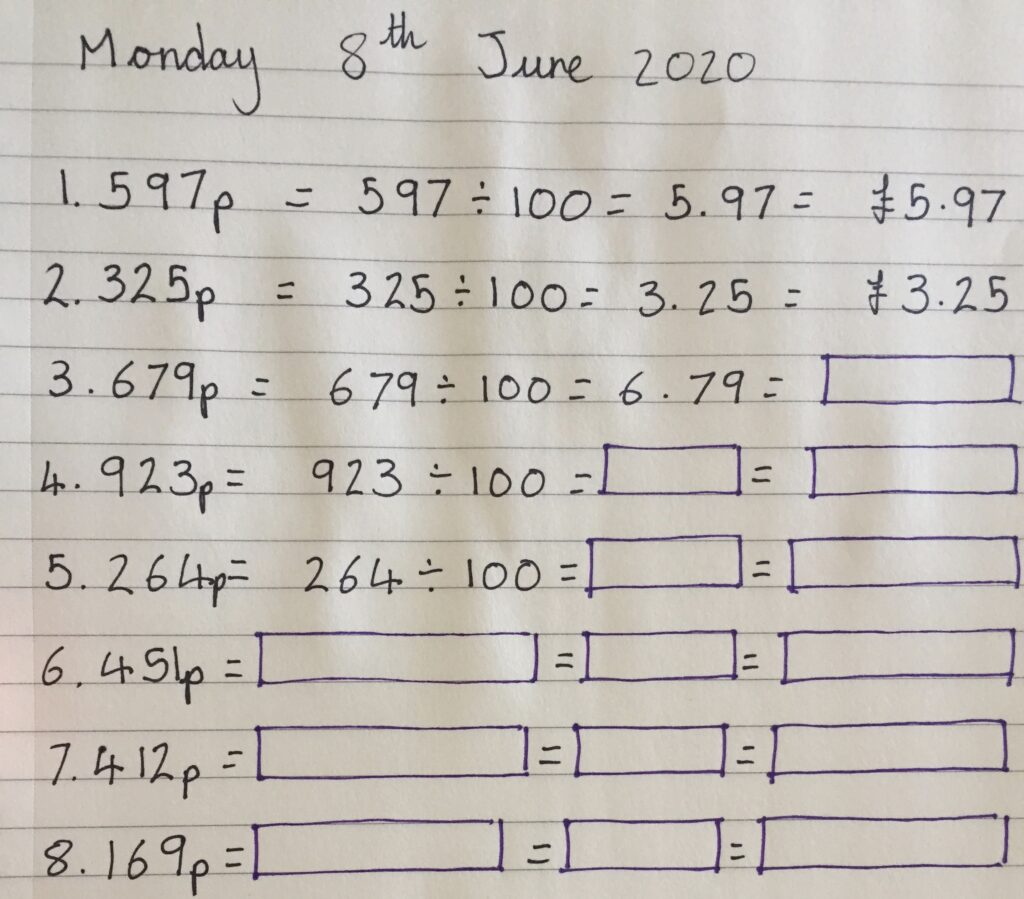 Monday 8th June 2020
1. 597p = 597 ÷ 100 = 5.97 = £5.97
2. 325p = 325 ÷ 100 = 3.25 = £3.25
3. 679p = 679 ÷ 100 = 6.79 =
4. 923p = 923 ÷ 100 = =
5. 264p = 264 ÷ 100 = =
6. 451p = = =
7. 412p = = =
8. 169p = = =